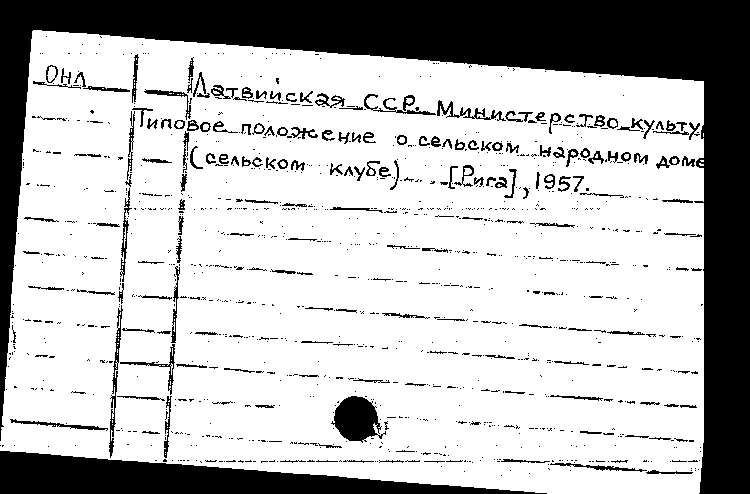 ОНЛ
Латвийская ССР. Министерство культу
Типовое положение о сельском народном доме
(сельском клубе) . . [Рига], 1957.